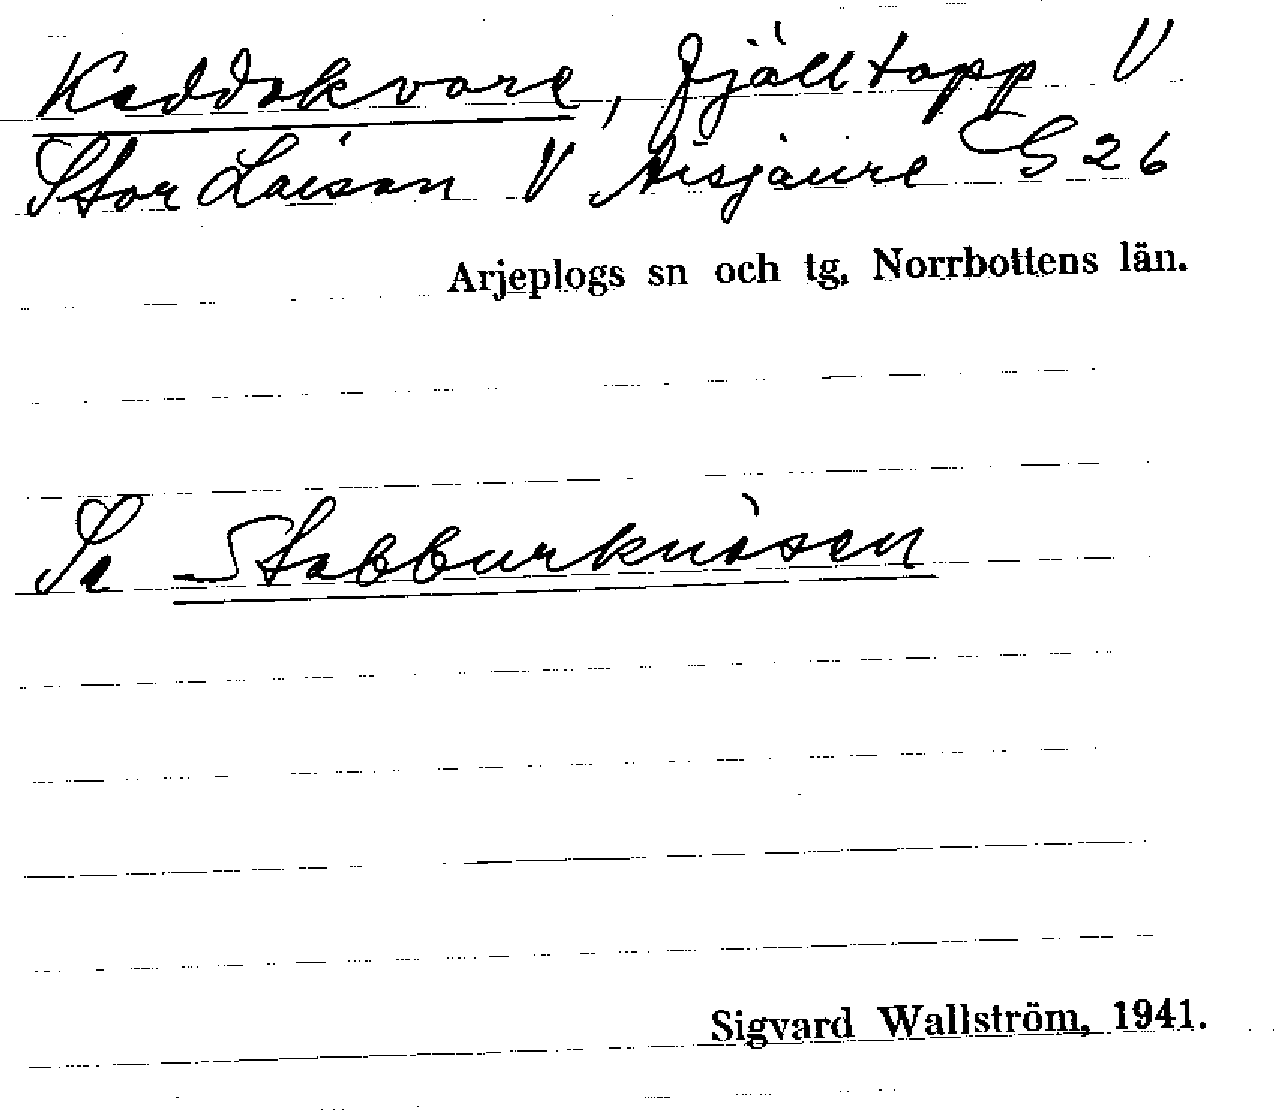 Kaddakvare, fjälltopp V
Stor Laisan V Aisjaure G 26
Arjeplogs sn och tg, Norrbottens län.
Se Stabburknösen
Sigvard Wallström, 1941.